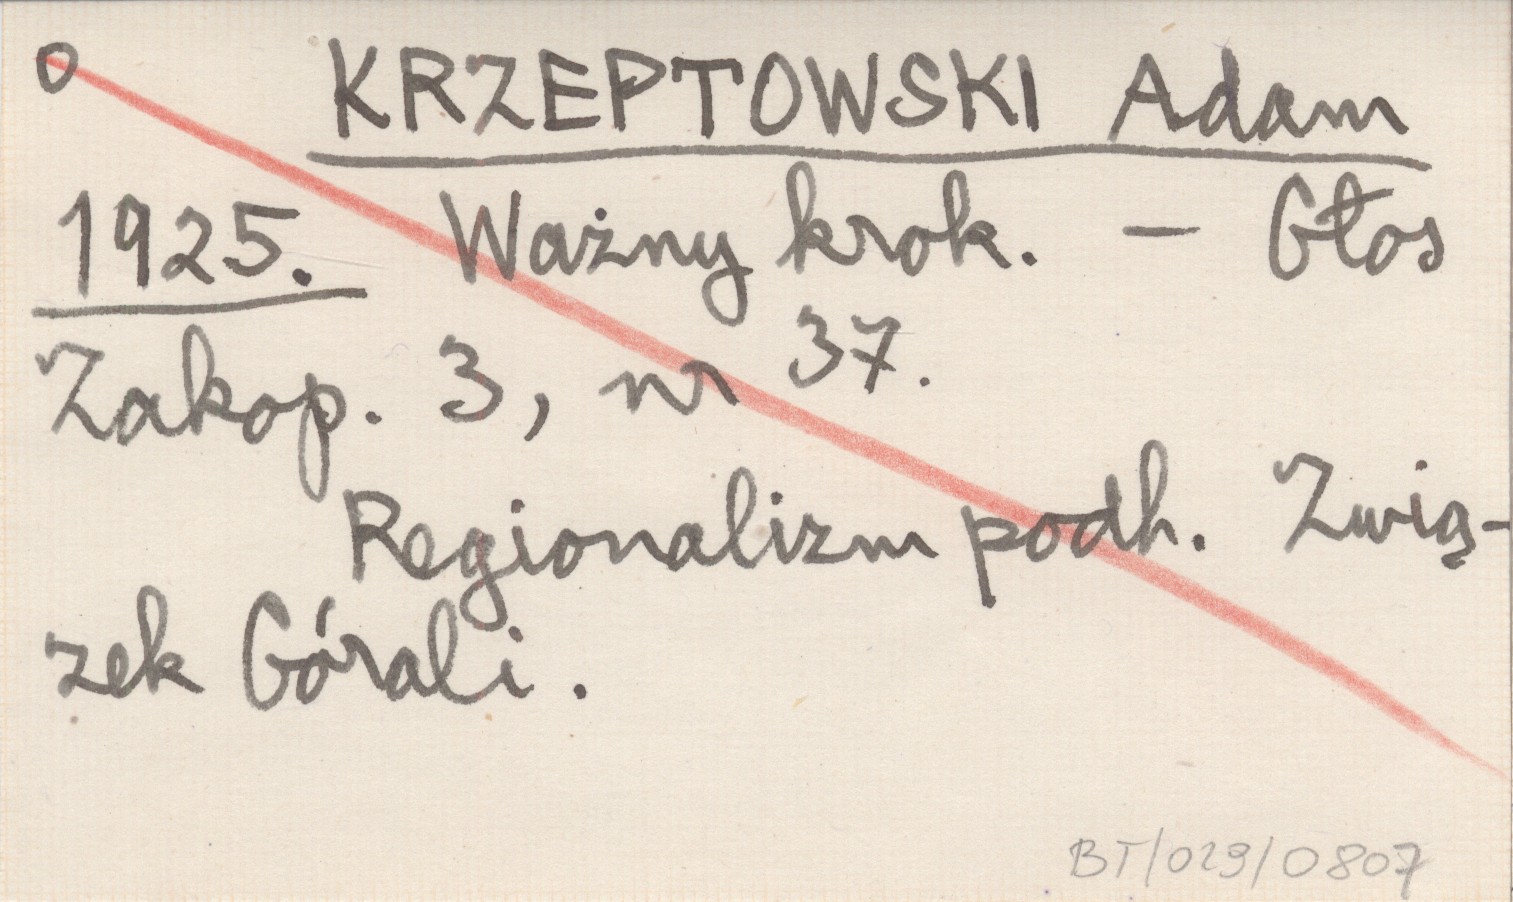 O KRZEPTOWSKI Adam
1925. Ważny krok. – Głos
Zakop. 3, nr 37.
Regionalizm podh. Zwią-
zek Górali.
BT/029/0807